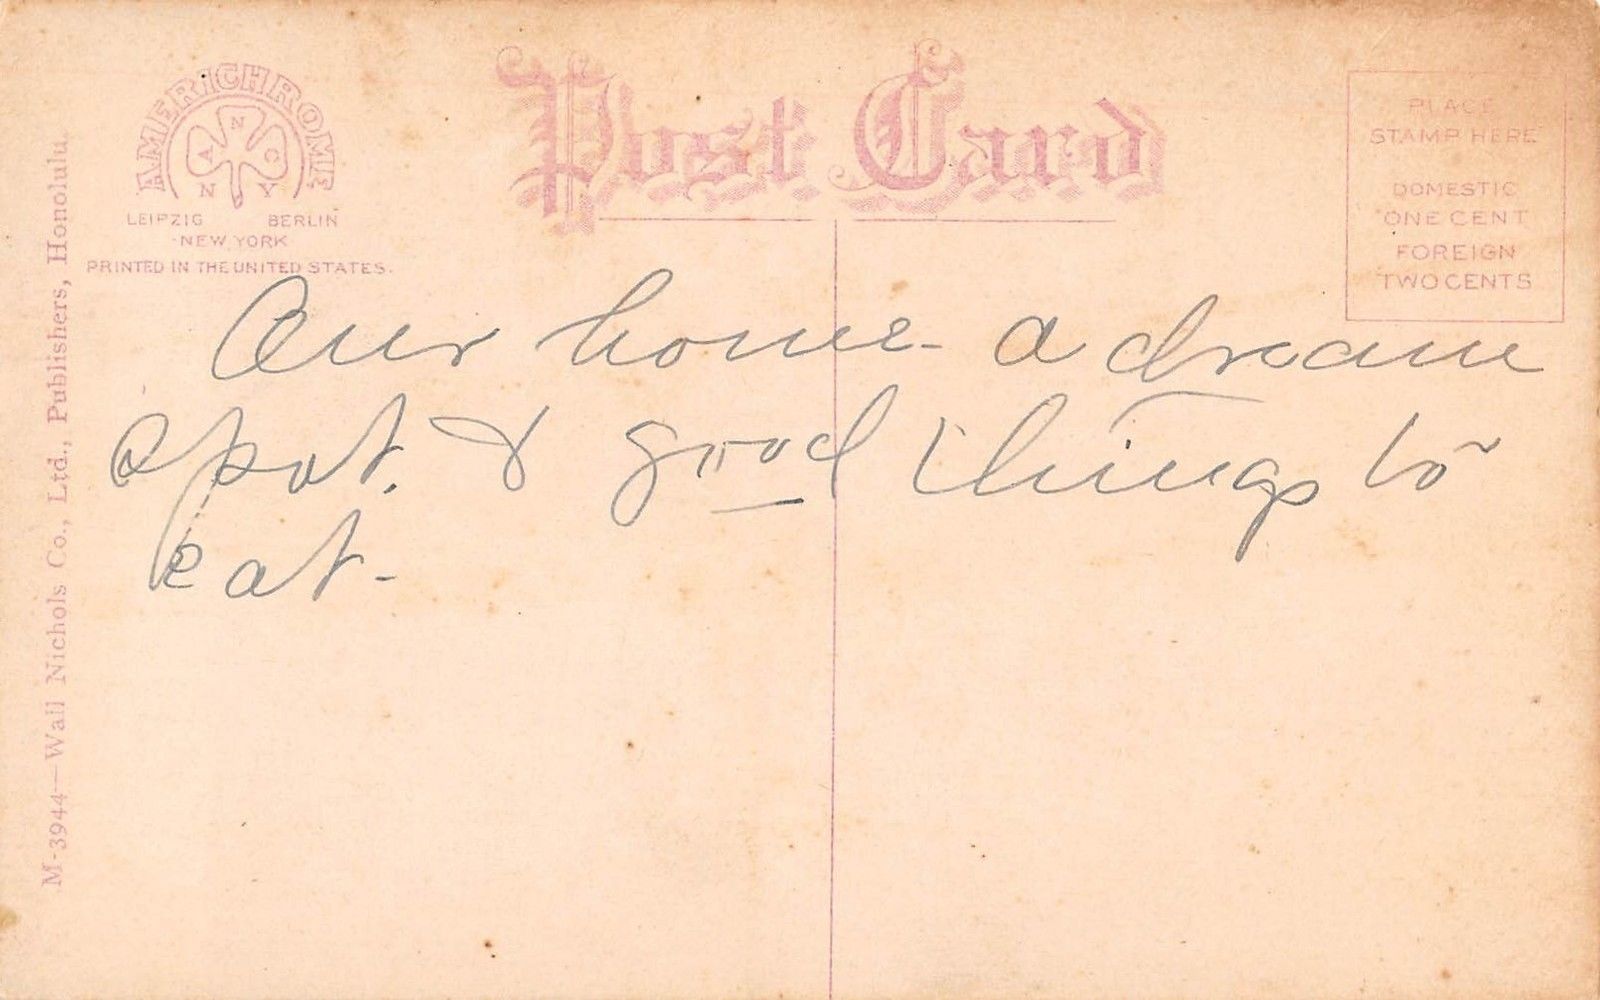 AMERICHROME
N
A C
N Y
LEIPZIG BERLIN
NEW YORK
PRINTED IN THE UNITED STATES.
Post Card
PLACE
STAMP HERE
DOMESTIC
ONE CENT
FOREIGN
TWO CENTS
M-3944—Wall Nichols Co., Ltd., Publishers, Honolulu.
Our home - a dream
spot. & good things to
eat -